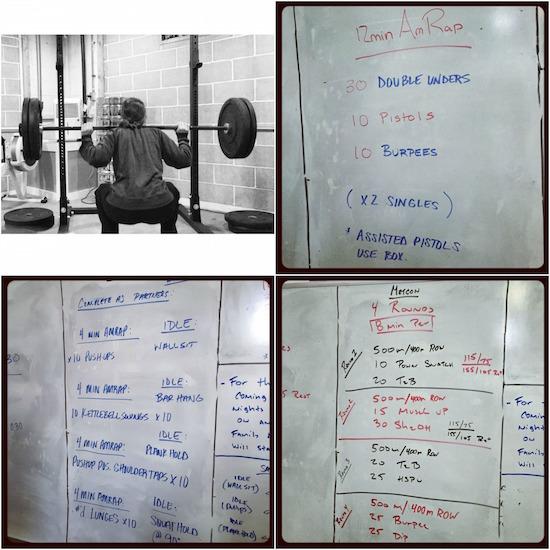 12min AmRap
30 DOUBLE UNDERS
10 Pistols
10 BURPEES
(X2 SINGLES)
* ASSISTED PISTOLS
USE BOX.
COMPLETE AS PARTNERS:
4 MIN AMRAP: IDLE:
WALLSIT
X10 PUSHUPS
4 MIN AMRAP: IDLE:
BAR HANG
10 KETTLEBELL SWINGS X10
4 MIN AMRAP: IDLE:
PLANK HOLD
PUSHUP POS. SHOULDER TAPS X10
4 MIN AMRAP: IDLE:
LUNGES X10 SQUAT HOLD
@ 90°
30
030
- For th
Coming
Nights
ow an
Family
Will sta
IDLE
(WALLSIT)
IDLE
IDLE
(PLANK HOLD)
METCON
4 ROUNDS
8 min Per
500m/400m ROW
10 Power SNATCH 115/75
20 T2B
500m/400m ROW
15 Muscle UP
30 Sh2OH 115/75
500m/400m ROW
20 T2B
25 HSPU
500m/400m ROW
25 Burpee
25 Dip
REST
- For
Coming
Night
ow
Family
Will